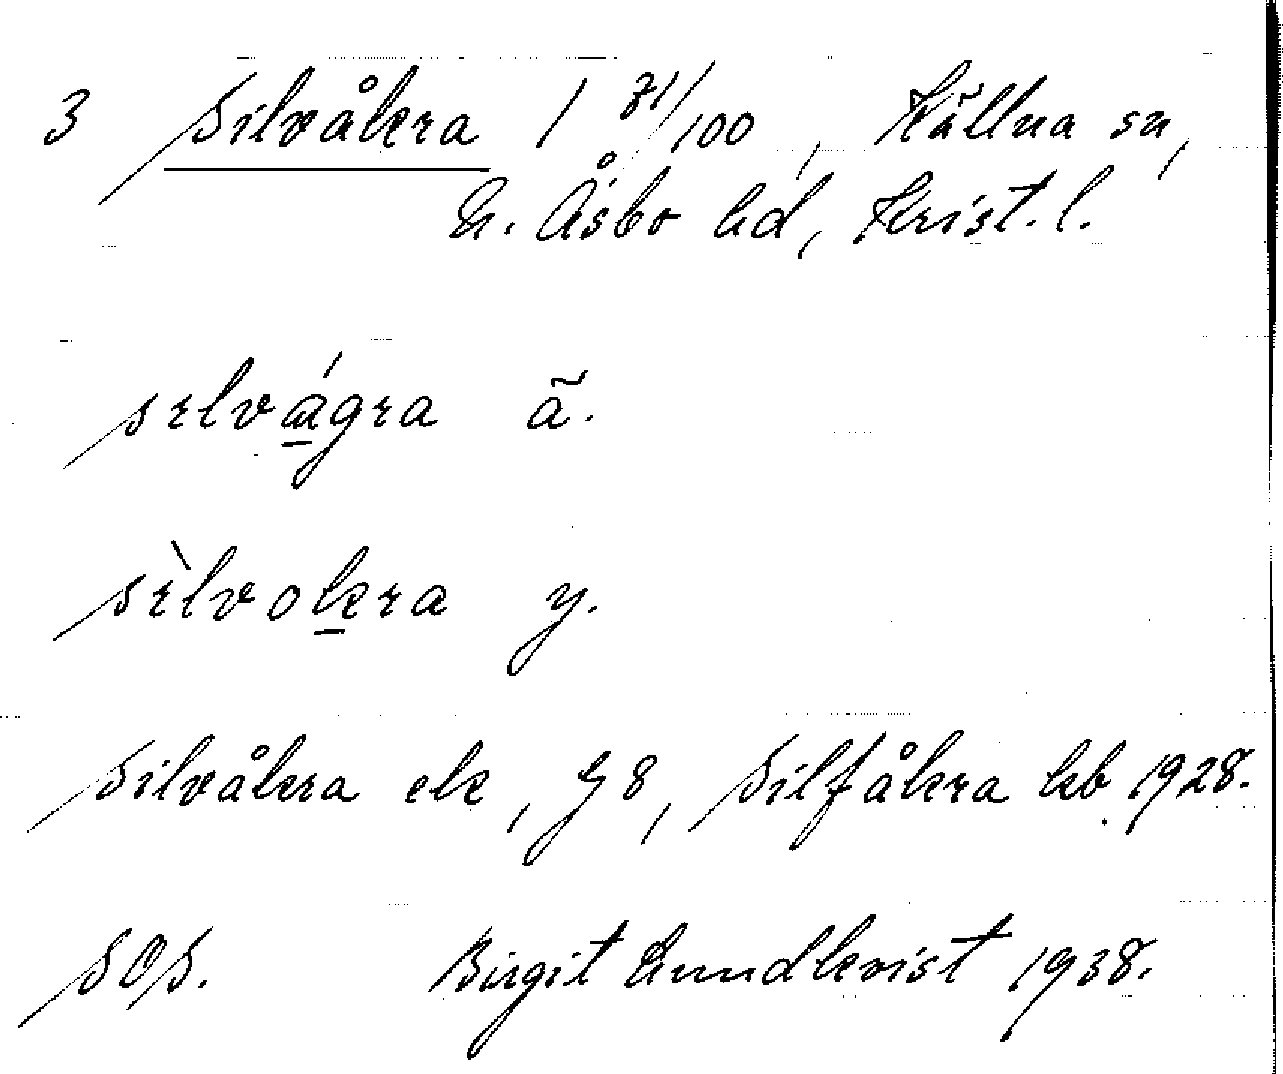 3 Silvåkra 1 71/100, Källna sn,
N. Åsbo hd, Krist. l.
sɪlvágra ä.
sɪ̀lvokra y.
Silvåkra ek, G 8, Silfåkra kb 1928.
SOS. Birgit Lundkvist 1938.